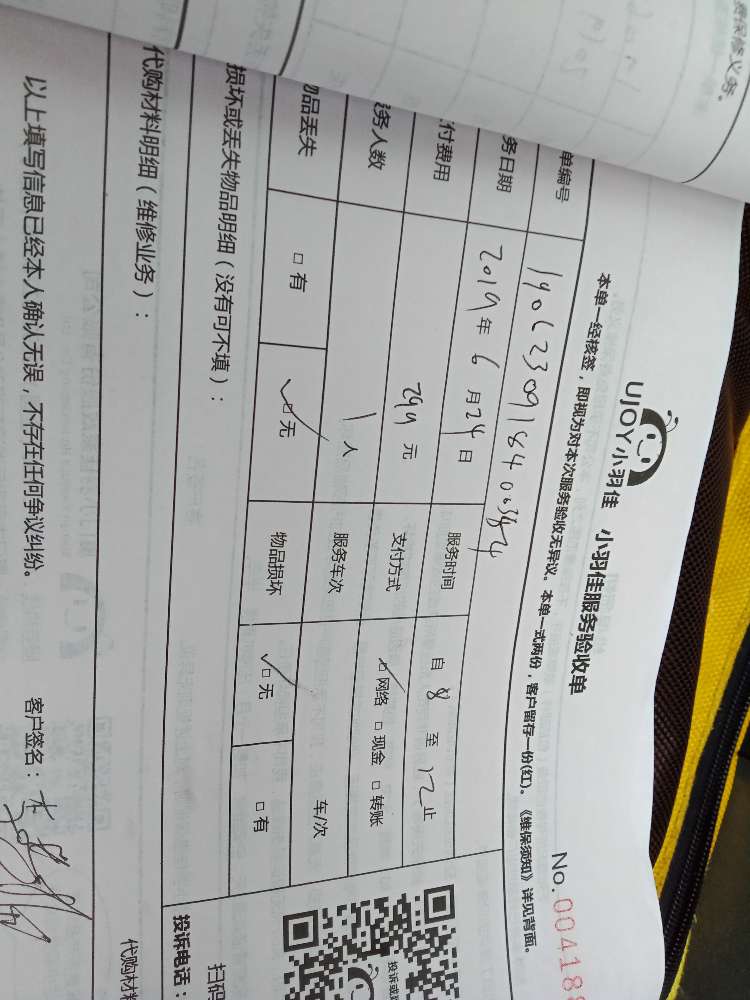 保修义务。
UJOY小羽佳 小羽佳服务验收单
No.00418
本单一经核签，即视为对本次服务验收无异议。本单一式两份，客户留存一份(红)。《维保须知》详见背面。
单编号
务日期 2019年6月24日 服务时间 自 8 至 12 止
付费用 299 元 支付方式 □网络 □现金 □转账
务人数 1 人 服务车次 车/次
物品丢失 □有 □无 物品损坏 □无 □有
损坏或丢失物品明细（没有可不填）：
扫码
投诉电话：
代购材料明细（维修业务）：
代购材料
以上填写信息已经本人确认无误，不存在任何争议纠纷。 客户签名：